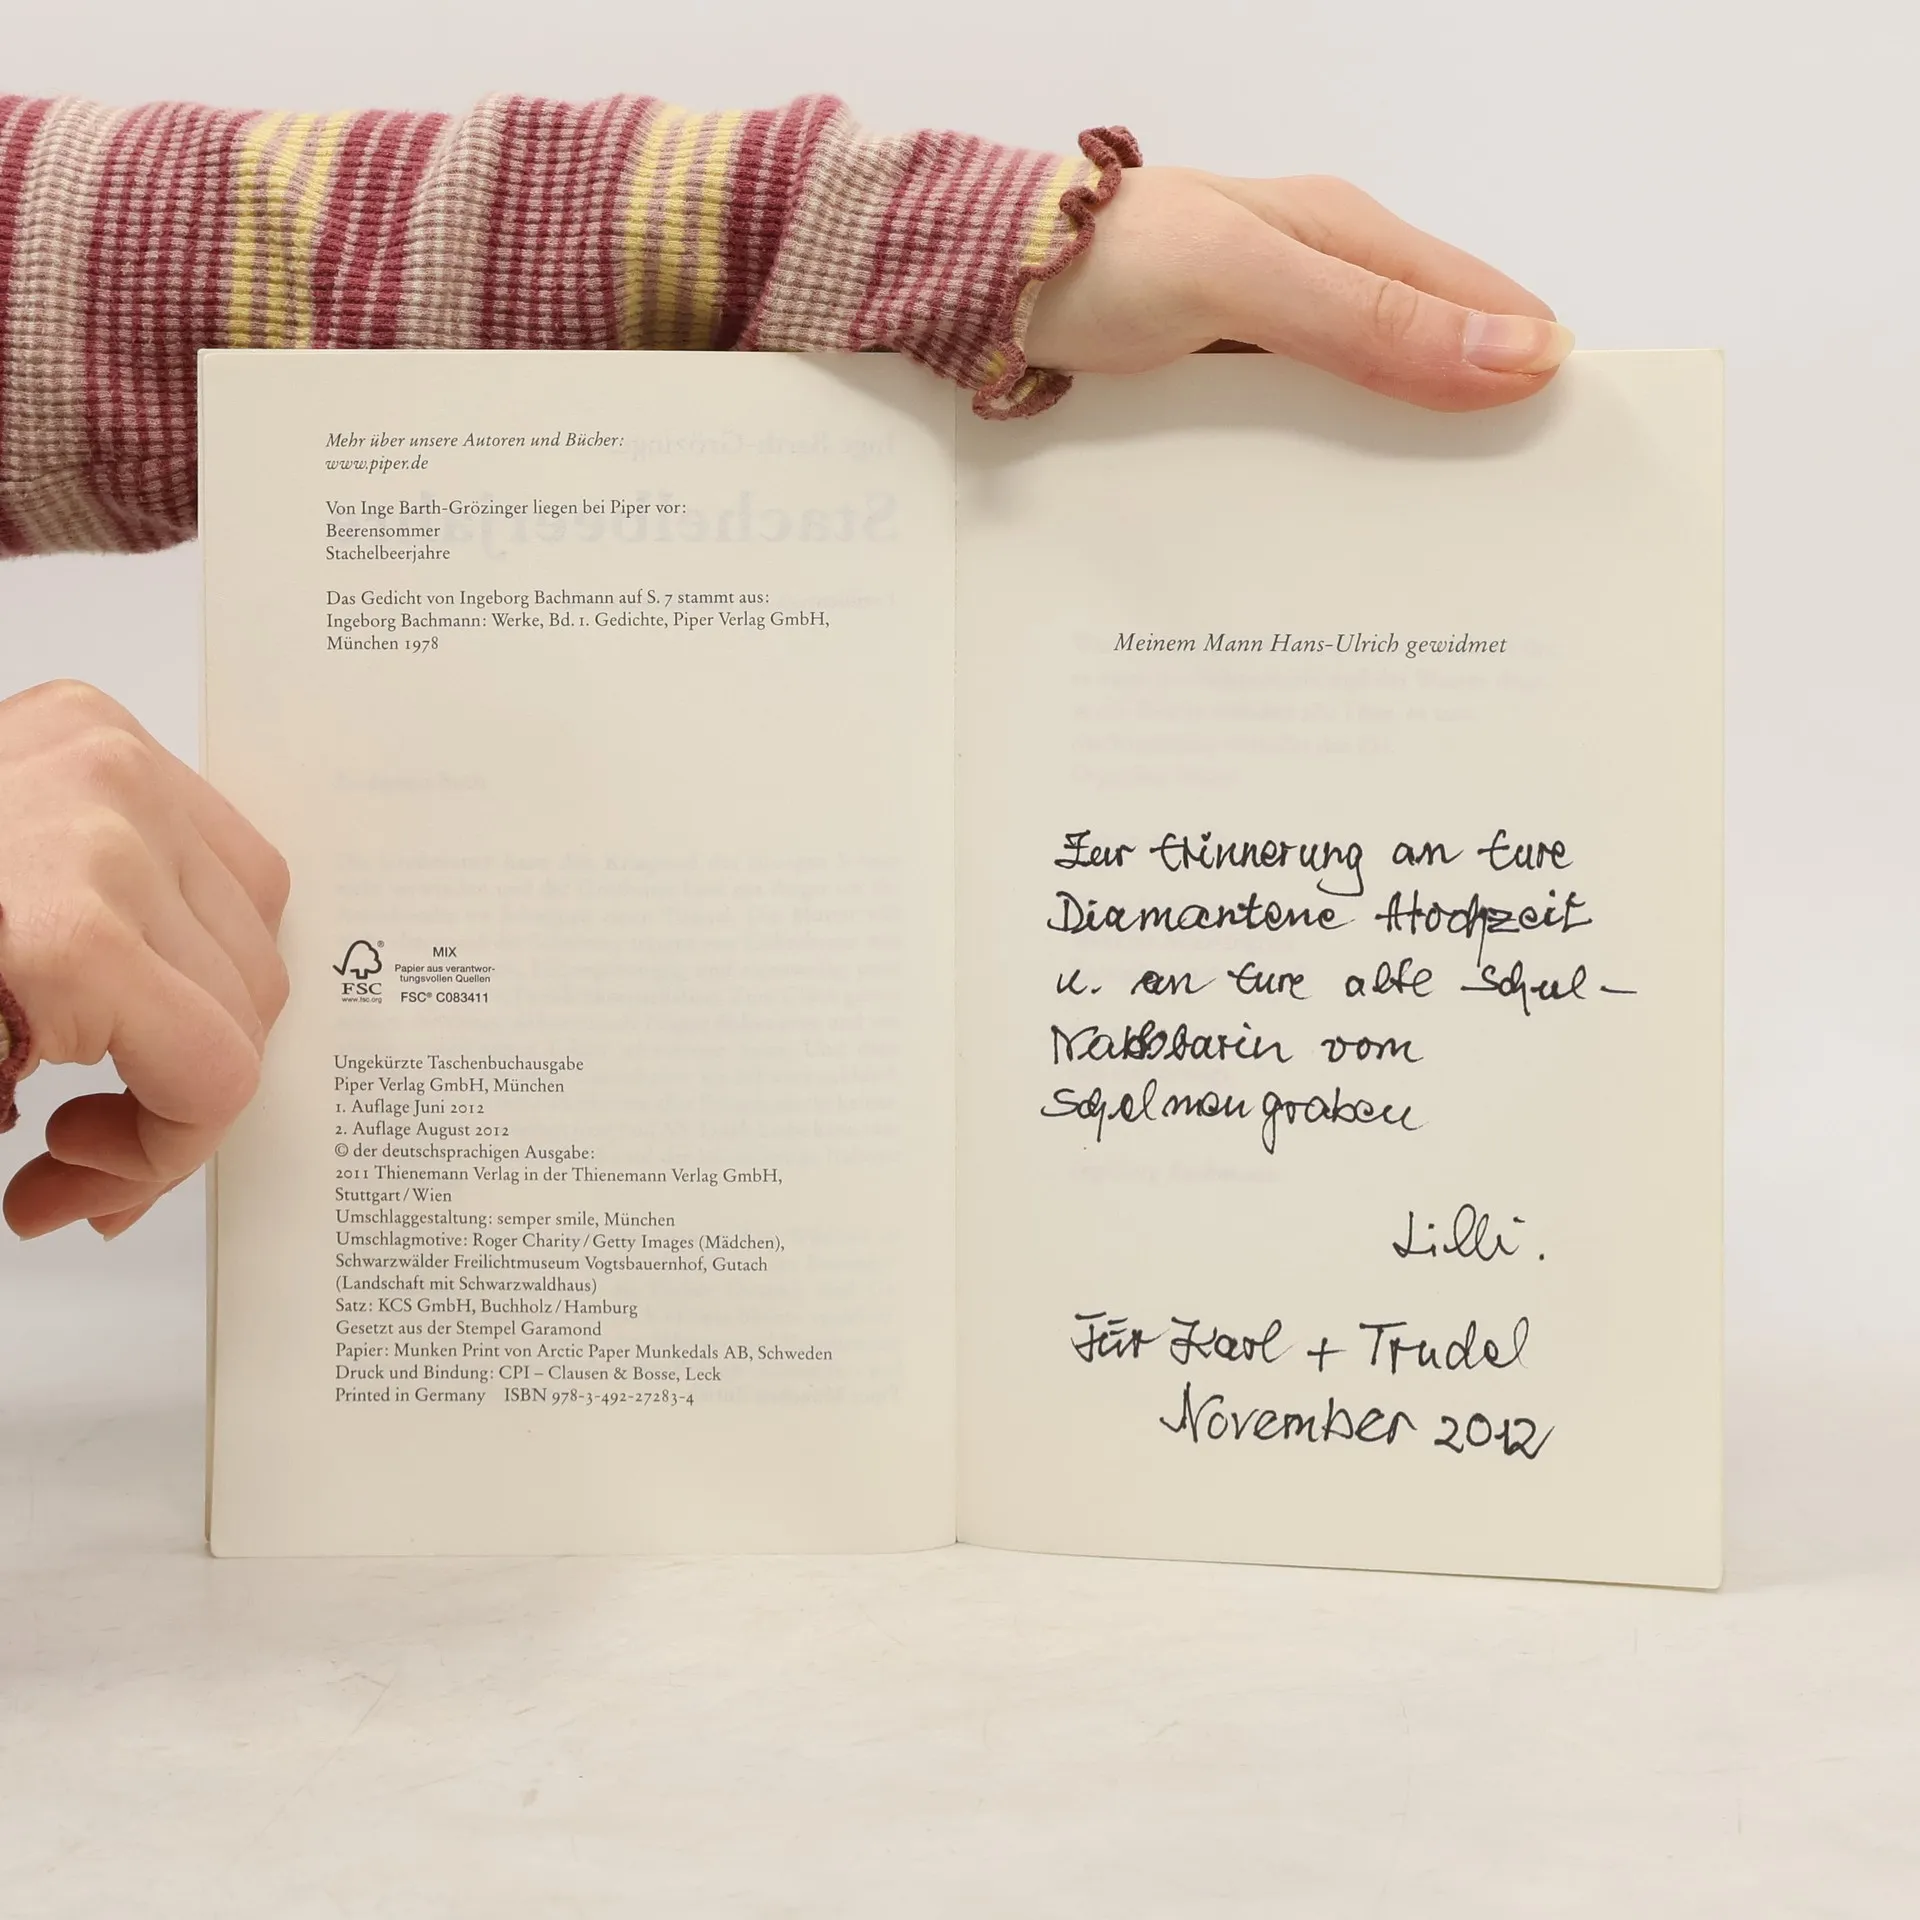 Mehr über unsere Autoren und Bücher:
www.piper.de
Von Inge Barth-Grözinger liegen bei Piper vor:
Beerensommer
Stachelbeerjahre
Das Gedicht von Ingeborg Bachmann auf S. 7 stammt aus:
Ingeborg Bachmann: Werke, Bd. 1. Gedichte, Piper Verlag GmbH,
München 1978
FSC®
www.fsc.org
MIX
Papier aus verantwor-
tungsvollen Quellen
FSC® C083411
Ungekürzte Taschenbuchausgabe
Piper Verlag GmbH, München
1. Auflage Juni 2012
2. Auflage August 2012
© der deutschsprachigen Ausgabe:
2011 Thienemann Verlag in der Thienemann Verlag GmbH,
Stuttgart/Wien
Umschlaggestaltung: semper smile, München
Umschlagmotive: Roger Charity/Getty Images (Mädchen),
Schwarzwälder Freilichtmuseum Vogtsbauernhof, Gutach
(Landschaft mit Schwarzwaldhaus)
Satz: KCS GmbH, Buchholz/Hamburg
Gesetzt aus der Stempel Garamond
Papier: Munken Print von Arctic Paper Munkedals AB, Schweden
Druck und Bindung: CPI – Clausen & Bosse, Leck
Printed in Germany ISBN 978-3-492-27283-4
Meinem Mann Hans-Ulrich gewidmet
Zur Erinnerung an Eure
Diamantene Hochzeit
u. an Eure alte Schul-
Nachbarin vom
Schelmengraben
Lilli.
Für Karl + Trudel
November 2012